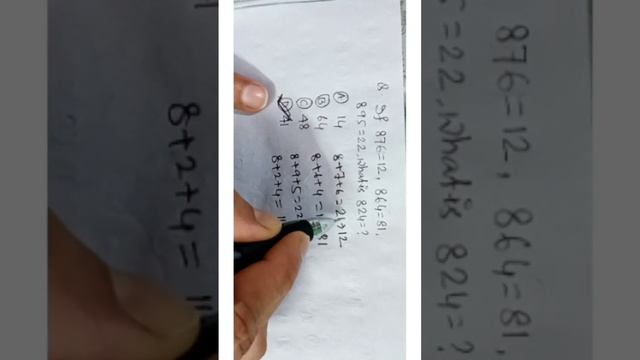 8+2+4=
Q If 876=12, 864=81,
895=22, what is 824=?
A 14
B 64
C 48
D 41
8+7+6=21→12
8+6+4=1 81
8+9+5=22
8+2+4=
876=12, 864=81,
5=22, what is 824=?